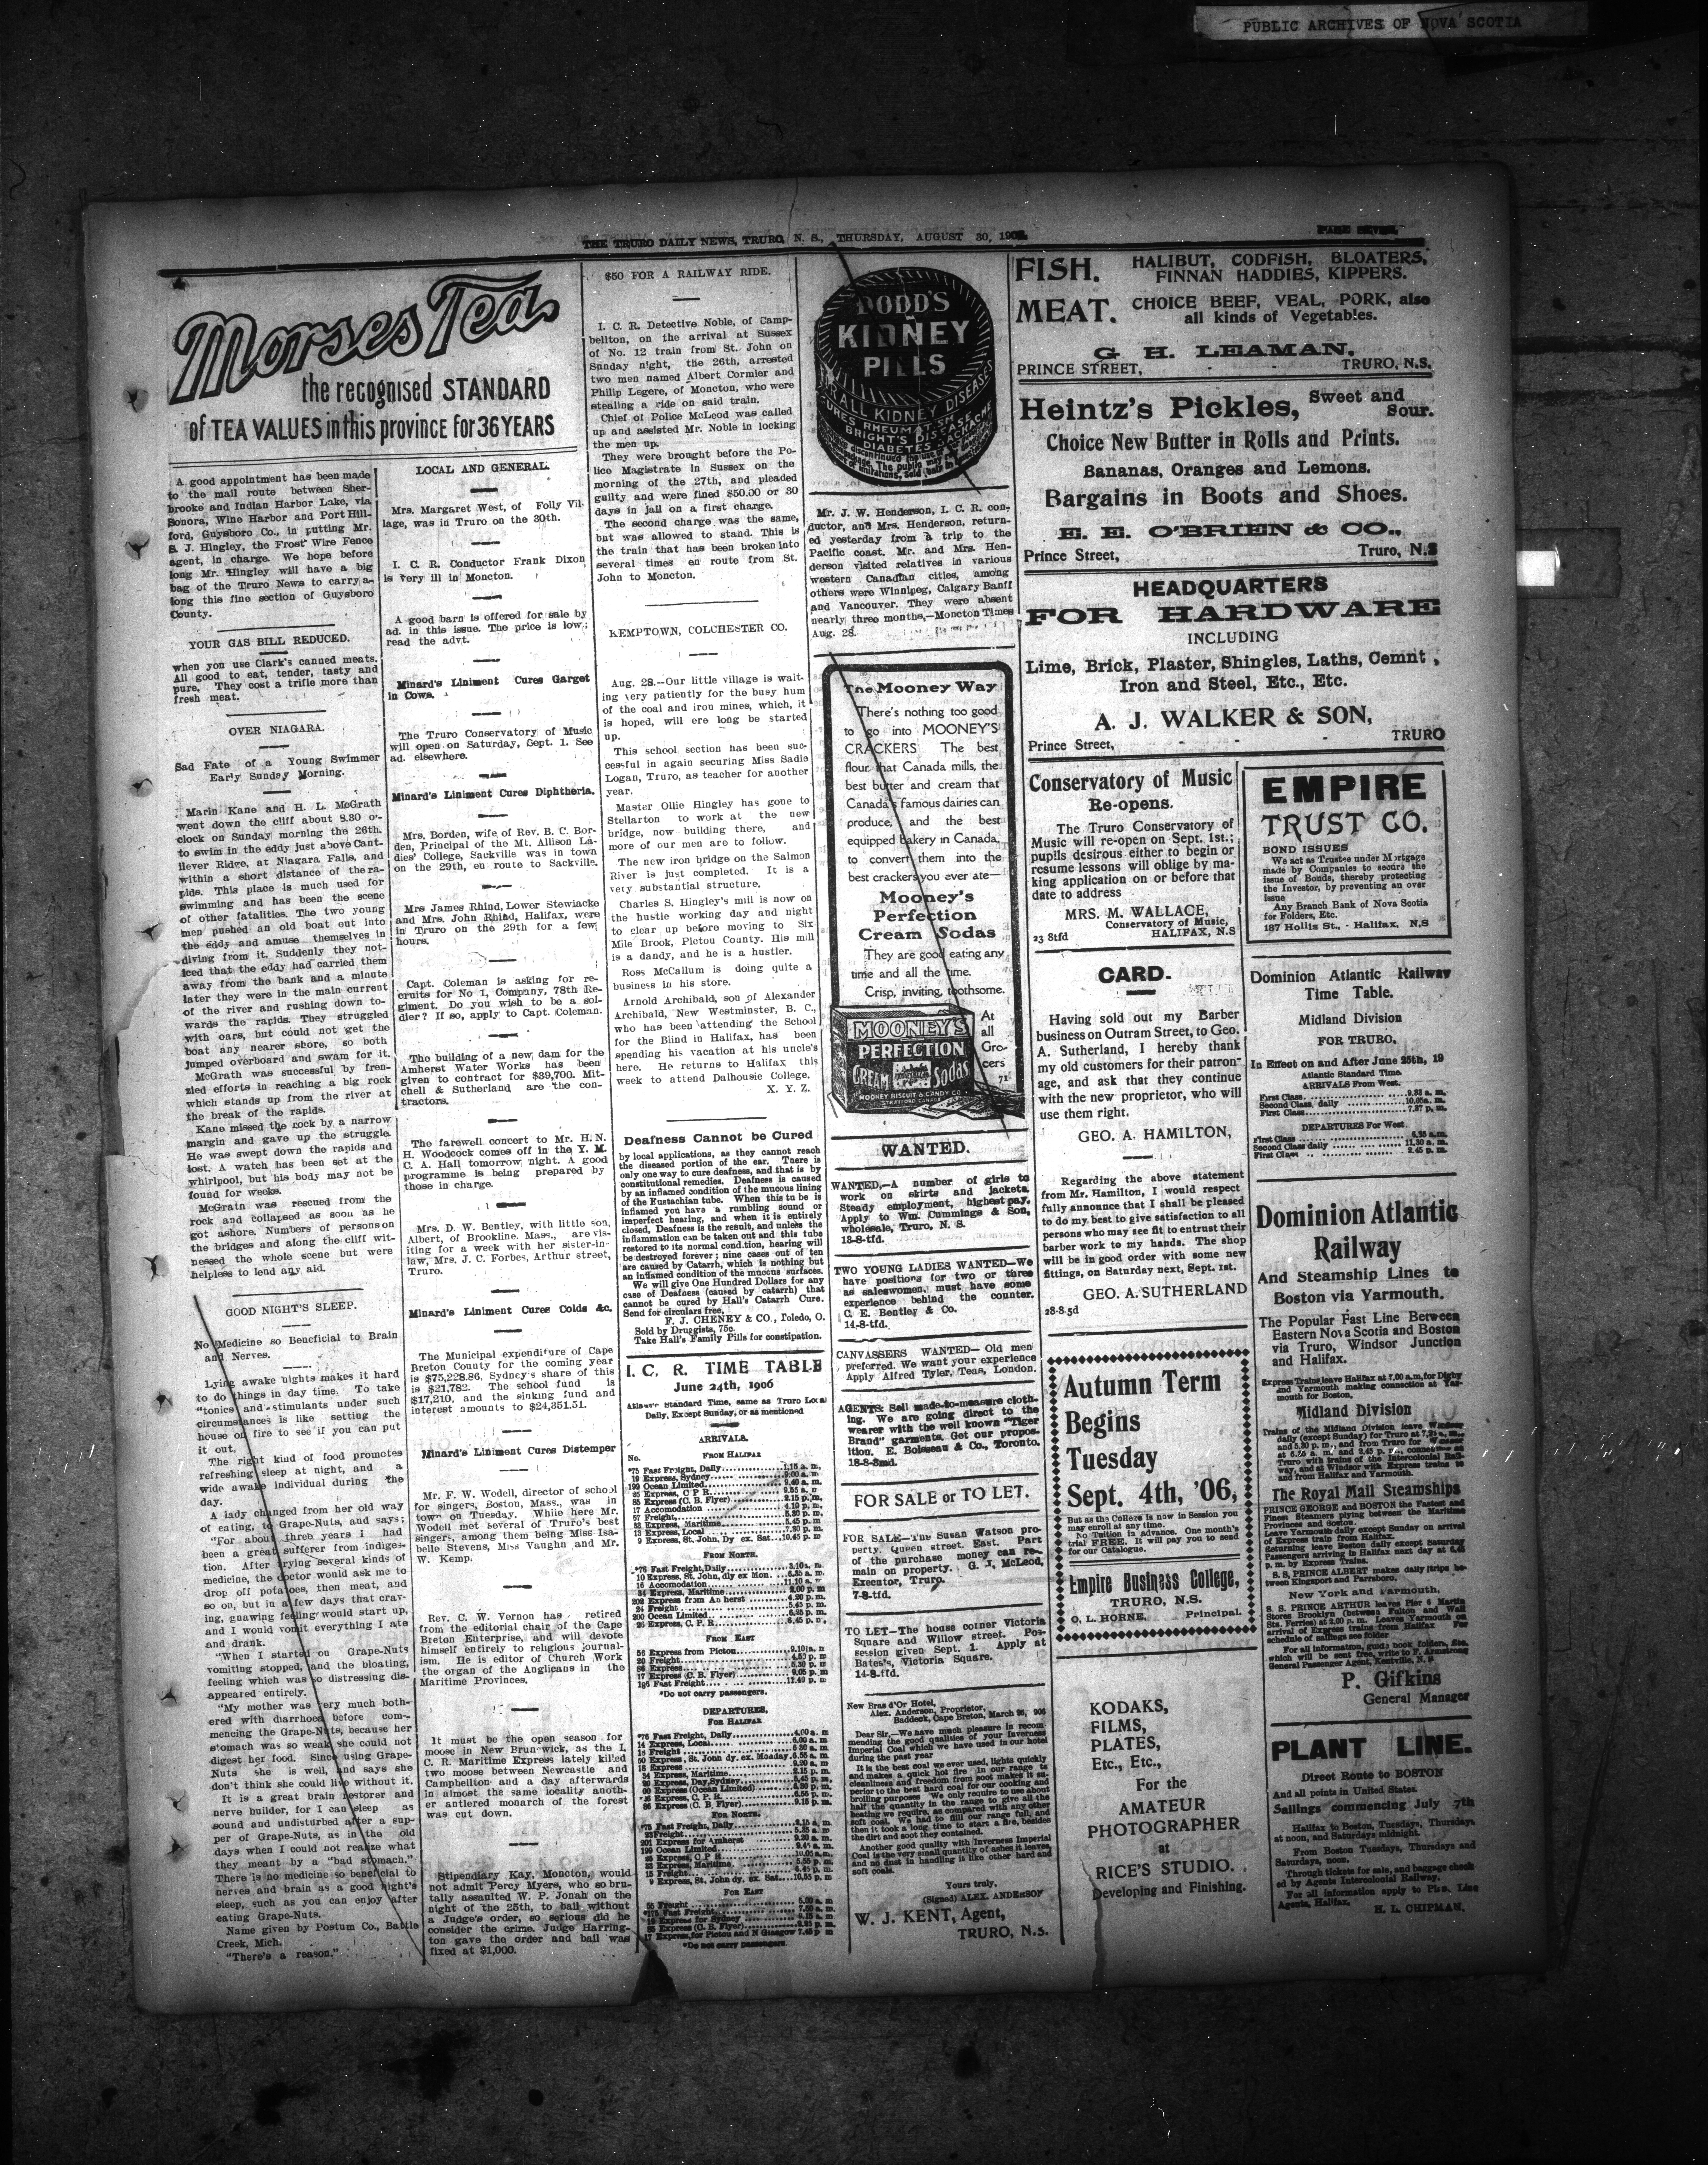 PUBLIC ARCHIVES OF NOVA SCOTIA
THE TRURO DAILY NEWS, TRURO, N. S., THURSDAY, AUGUST 30,
Morses Tea
the recognised STANDARD
of TEA VALUES in this province for 36 YEARS
A good appointment has been made
to the mail route between Sher-
brooke and Indian Harbor Lake, via
Sonora, Wine Harbor and Port Hill-
ford, Guysboro Co., in putting Mr.
S. J. Hingley, the Frost Wire Fence
agent, in charge. We hope before
long Mr. Hingley will have a big
bag of the Truro News to carry a-
long this fine section of Guysboro
County.
YOUR GAS BILL REDUCED.
when you use Clark's canned meats.
All good to eat, tender, tasty and
pure. They cost a trifle more than
fresh meat.
OVER NIAGARA.
Sad Fate of a Young Swimmer
Early Sunday Morning.
Marin Kane and H. L. McGrath
went down the cliff about 8.30 o'-
clock on Sunday morning the 26th.
to swim in the eddy just above Cant-
ilever Ridge, at Niagara Falls, and
within a short distance of the ra-
pids. This place is much used for
swimming and has been the scene
of other fatalities. The two young
men pushed an old boat out into
the eddy and amuse themselves in
diving from it. Suddenly they not-
iced that the eddy had carried them
away from the bank and a minute
later they were in the main current
of the river and rushing down to-
wards the rapids. They struggled
with oars, but could not get the
boat any nearer shore, so both
jumped overboard and swam for it.
McGrath was successful by fren-
zied efforts in reaching a big rock
which stands up from the river at
the break of the rapids.
Kane missed the rock by a narrow
margin and gave up the struggle.
He was swept down the rapids and
lost. A watch has been set at the
whirlpool, but his body may not be
found for weeks.
McGrath was rescued from the
rock and collapsed as soon as he
got ashore. Numbers of persons on
the bridges and along the cliff wit-
nessed the whole scene but were
helpless to lend any aid.
GOOD NIGHT'S SLEEP.
No Medicine so Beneficial to Brain
and Nerves.
Lying awake nights makes it hard
to do things in day time. To take
"tonics and stimulants under such
circumstances is like setting the
house on fire to see if you can put
it out.
The right kind of food promotes
refreshing sleep at night, and a
wide awake individual during the
day.
A lady changed from her old way
of eating, to Grape-Nuts, and says:
"For about three years I had
been a great sufferer from indiges-
tion. After trying several kinds of
medicine, the doctor would ask me to
drop off potatoes, then meat, and
so on, but in a few days that crav-
ing, gnawing feeling would start up,
and I would vomit everything I ate
and drank.
"When I started on Grape-Nuts
vomiting stopped, and the bloating,
feeling which was so distressing dis-
appeared entirely.
"My mother was very much both-
ered with diarrhoea before com-
mencing the Grape-Nuts, because her
stomach was so weak she could not
digest her food. Since using Grape-
Nuts she is well, and says she
don't think she could live without it.
It is a great brain restorer and
nerve builder, for I can sleep as
sound and undisturbed after a sup-
per of Grape-Nuts, as in the old
days when I could not realize what
they meant by a "bad stomach."
There is no medicine so beneficial to
nerves and brain as a good night's
sleep, such as you can enjoy after
eating Grape-Nuts.
Name given by Postum Co., Battle
Creek, Mich.
"There's a reason."
LOCAL AND GENERAL.
Mrs. Margaret West, of Folly Vil-
lage, was in Truro on the 30th.
I. C. R. Conductor Frank Dixon
is very ill in Moncton.
A good barn is offered for sale by
ad. in this issue. The price is low;
read the advt.
Minard's Liniment Cures Garget
in Cows.
The Truro Conservatory of Music
will open on Saturday, Sept. 1. See
ad. elsewhere.
Minard's Liniment Cures Diphtheria.
Mrs. Borden, wife of Rev. B. C. Bor-
den, Principal of the Mt. Allison La-
dies' College, Sackville was in town
on the 29th, en route to Sackville.
Mrs James Rhind, Lower Stewiacke
and Mrs. John Rhind, Halifax, were
in Truro on the 29th for a few
hours.
Capt. Coleman is asking for re-
cruits for No 1, Company, 78th Re-
giment. Do you wish to be a sol-
dier? If so, apply to Capt. Coleman.
The building of a new dam for the
Amherst Water Works has been
given to contract for $39,700. Mit-
chell & Sutherland are the con-
tractors.
The farewell concert to Mr. H. N.
H. Woodcock comes off in the Y. M.
C. A. Hall tomorrow night. A good
programme is being prepared by
those in charge.
Mrs. D. W. Bentley, with little son,
Albert, of Brookline. Mass., are vis-
iting for a week with her sister-in-
law, Mrs. J. C. Forbes, Arthur street,
Truro.
Minard's Liniment Cures Colds &c.
The Municipal expenditure of Cape
Breton County for the coming year
is $75,228.86, Sydney's share of this
is $21,782. The school fund is
$17,210, and the sinking fund and
interest amounts to $24,351.51.
Minard's Liniment Cures Distemper
Mr. F. W. Wodell, director of school
for singers, Boston, Mass., was in
town on Tuesday. While here Mr.
Wodell met several of Truro's best
singers, among them being Miss Isa-
belle Stevens, Miss Vaughn and Mr.
W. Kemp.
Rev. C. W. Vernon has retired
from the editorial chair of the Cape
Breton Enterprise, and will devote
himself entirely to religious journal-
ism. He is editor of Church Work
the organ of the Anglicans in the
Maritime Provinces.
It must be the open season for
moose in New Brunswick, as the I.
C. R. Maritime Express lately killed
two moose between Newcastle and
Campbellton and a day afterwards
in almost the same locality anoth-
er antlered monarch of the forest
was cut down.
Stipendiary Kay, Moncton, would
not admit Percy Myers, who so bru-
tally assaulted W. P. Jonah on the
night of the 25th, to bail without
a Judge's order, so serious did he
consider the crime. Judge Harring-
ton gave the order and bail was
fixed at $1,000.
$50 FOR A RAILWAY RIDE.
I. C. R. Detective Noble, of Camp-
bellton, on the arrival at Sussex
of No. 12 train from St. John on
Sunday night, the 26th, arrested
two men named Albert Cormier and
Philip Legere, of Moncton, who were
stealing a ride on said train.
Chief of Police McLeod was called
up and assisted Mr. Noble in locking
the men up.
They were brought before the Po-
lice Magistrate in Sussex on the
morning of the 27th, and pleaded
guilty and were fined $50.00 or 30
days in jail on a first charge.
The second charge was the same,
but was allowed to stand. This is
the train that has been broken into
several times en route from St.
John to Moncton.
KEMPTOWN, COLCHESTER CO.
Aug. 28.—Our little village is wait-
ing very patiently for the busy hum
of the coal and iron mines, which, it
is hoped, will ere long be started
up.
This school section has been suc-
cessful in again securing Miss Sadie
Logan, Truro, as teacher for another
year.
Master Ollie Hingley has gone to
Stellarton to work at the new
bridge, now building there, and
more of our men are to follow.
The new iron bridge on the Salmon
River is just completed. It is a
very substantial structure.
Charles S. Hingley's mill is now on
the hustle working day and night
to clear up before moving to Six
Mile Brook, Pictou County. His mill
is a dandy, and he is a hustler.
Ross McCallum is doing quite a
business in his store.
Arnold Archibald, son of Alexander
Archibald, New Westminster, B. C.,
who has been attending the School
for the Blind in Halifax, has been
spending his vacation at his uncle's
here. He returns to Halifax this
week to attend Dalhousie College.
X. Y. Z.
Deafness Cannot be Cured
by local applications, as they cannot reach
the diseased portion of the ear. There is
only one way to cure deafness, and that is by
constitutional remedies. Deafness is caused
by an inflamed condition of the mucous lining
of the Eustachian tube. When this tube is
inflamed you have a rumbling sound or
imperfect hearing, and when it is entirely
closed, Deafness is the result, and unless the
inflammation can be taken out and this tube
restored to its normal condition, hearing will
be destroyed forever; nine cases out of ten
are caused by Catarrh, which is nothing but
an inflamed condition of the mucous surfaces.
We will give One Hundred Dollars for any
case of Deafness (caused by catarrh) that
cannot be cured by Hall's Catarrh Cure.
Send for circulars free.
F. J. CHENEY & CO., Toledo, O.
Sold by Druggists, 75c.
Take Hall's Family Pills for constipation.
I. C. R. TIME TABLE
June 24th, 1906
Atlantic Standard Time, same as Truro Local
Daily, Except Sunday, or as mentioned
ARRIVALS.
No. FROM HALIFAX
*75 Fast Freight, Daily 1.15 a. m.
19 Express, Sydney 9.00 a. m.
199 Ocean Limited 9.40 a. m.
25 Express, C P R 9.55 a.
85 Express (C. B. Flyer) 2.15 p. m.
17 Accomodation 4.10 p. m.
57 Freight 5.30 p. m.
33 Express, Maritime 5.45 p. m.
13 Express, Local 7.30 p. m.
9 Express, St. John, Dy ex. Sat 10.45 p. m
FROM NORTH.
*76 Fast Freight, Daily 3.10 a. m.
10 Express, St. John, dly ex Mon. 5.35 a. m.
16 Accomodation 11.10 a.
34 Express, Maritime
202 Express from Amherst 4.20 p. m.
24 Freight 5.45 p. m.
200 Ocean Limited 6.25 p. m.
26 Express, C. P. R. 6.45 p.
FROM EAST
56 Express from Pictou
20 Freight 4.50 p. m
86 Express 5.30 p. m
*Do not carry passengers.
DEPARTURES,
FOR HALIFAX
*76 Fast Freight, Daily 4.00 a. m
14 Express, Local 6.00 a. m
18 Freight 6 30 a. m
50 Express, St. John dy. ex. Monday 6.55 a. m.
FOR NORTH.
*75 Fast Freight, Daily 2.15 a. m.
201 Express for Amherst 9.20 a. m.
199 Ocean Limited
25 Express, C P R 10.05 a. m.
9 Express, St. John dy. ex. Sat. 10.55 p. m
FOR EAST
55 Freight 5.00 a. m
*Do not carry passengers.
DODD'S
KIDNEY
PILLS
ALL KIDNEY DISEASES
CURES RHEUMATISM
BRIGHT'S DISEASE
DIABETES BACKACHE
Mr. J. W. Henderson, I. C. R. con-
ductor, and Mrs. Henderson, return-
ed yesterday from a trip to the
Pacific coast. Mr. and Mrs. Hen-
derson visited relatives in various
western Canadian cities, among
others were Winnipeg, Calgary Banff
and Vancouver. They were absent
nearly three months,—Moncton Times
Aug. 28.
The Mooney Way
There's nothing too good
to go into MOONEY'S
CRACKERS The best
flour that Canada mills, the
best butter and cream that
Canada's famous dairies can
produce, and the best
equipped bakery in Canada,
to convert them into the
best crackers you ever ate—
Mooney's
Perfection
Cream Sodas
They are good eating any
time and all the time.
Crisp, inviting, toothsome.
MOONEY'S
PERFECTION
CREAM Sodas
MOONEY BISCUIT & CANDY CO.
STRATFORD CANADA
At
all
Gro-
cers
71
WANTED.
WANTED,—A number of girls to
work on skirts and jackets.
Steady employment, highest pay.
Apply to Wm. Cummings & Son,
wholesale, Truro, N. S.
13-8-tfd.
TWO YOUNG LADIES WANTED—We
have positions for two or three
as saleswomen, must have some
experience behind the counter.
C. E. Bentley & Co.
14-8-tfd.
CANVASSERS WANTED— Old men
preferred. We want your experience
Apply Alfred Tyler, Teas, London.
AGENTS: Sell made-to-measure cloth-
ing. We are going direct to the
wearer with the well known "Tiger
Brand" garments. Get our propos-
ition. E. Boisseau & Co., Toronto.
18-8-3md.
FOR SALE or TO LET.
FOR SALE—The Susan Watson pro-
perty. Queen street, East. Part
of the purchase money can re-
main on property. G. J. McLeod,
Executor, Truro.
7-8-tfd.
TO LET—The house corner Victoria
Square and Willow street. Pos-
session given Sept. 1. Apply at
Bates's, Victoria Square.
14-8-tfd.
New Bras d'Or Hotel,
Alex. Anderson, Proprietor,
Baddeck, Cape Breton, March 26, 906
Dear Sir,—We have much pleasure in recom-
mending the good qualities of your Inverness
Imperial Coal which we have used in our hotel
during the past year
It is the best coal we ever used, lights quickly
and makes a quick hot fire In our range to
cleanliness and freedom from soot makes it su-
perior to the best hard coal for our cooking and
broiling purposes We only require to use about
half the quantity in the range to give all the
heating we require, as compared with any other
soft coal. We had to fill our range full, and
then it took a long time to start a fire, besides
the dirt and soot they contained.
Another good quality with Inverness Imperial
Coal is the very small quantity of ashes it leaves,
and no dust in handling it like other hard and
soft coals.
Yours truly,
(Signed) ALEX. ANDERSON
W. J. KENT, Agent,
TRURO, N.S.
FISH. HALIBUT, CODFISH, BLOATERS,
FINNAN HADDIES, KIPPERS.
MEAT. CHOICE BEEF, VEAL, PORK, also
all kinds of Vegetables.
G H. LEAMAN,
PRINCE STREET, - - TRURO, N.S.
Heintz's Pickles, Sweet and
Sour.
Choice New Butter in Rolls and Prints.
Bananas, Oranges and Lemons.
Bargains in Boots and Shoes.
E. E. O'BRIEN & CO.,
Prince Street, Truro, N.S
HEADQUARTERS
FOR HARDWARE
INCLUDING
Lime, Brick, Plaster, Shingles, Laths, Cemnt ,
Iron and Steel, Etc., Etc.
A. J. WALKER & SON,
Prince Street, - - TRURO
Conservatory of Music
Re-opens.
The Truro Conservatory of
Music will re-open on Sept. 1st.;
pupils desirous either to begin or
resume lessons will oblige by ma-
king application on or before that
date to address
MRS. M. WALLACE,
Conservatory of Music,
23 8tfd HALIFAX, N.S
CARD.
Having sold out my Barber
business on Outram Street, to Geo.
A. Sutherland, I hereby thank
my old customers for their patron-
age, and ask that they continue
with the new proprietor, who will
use them right.
GEO. A. HAMILTON,
Regarding the above statement
from Mr. Hamilton, I would respect
fully announce that I shall be pleased
to do my best to give satisfaction to all
persons who may see fit to entrust their
barber work to my hands. The shop
will be in good order with some new
fittings, on Saturday next, Sept. 1st.
GEO. A. SUTHERLAND
28-8-5d
Autumn Term
Begins
Tuesday
Sept. 4th, '06,
But as the College is now in Session you
may enroll at any time.
No Tuition in advance. One month's
trial FREE. It will pay you to send
for our Catalogue.
Empire Business College,
TRURO, N.S.
O. L. HORNE, Principal.
KODAKS,
FILMS,
PLATES,
Etc., Etc.,
For the
AMATEUR
PHOTOGRAPHER
at
RICE'S STUDIO.
Developing and Finishing.
EMPIRE
TRUST CO.
BOND ISSUES
We act as Trustee under Mortgage
made by Companies to secure the
issue of Bonds, thereby protecting
the Investor, by preventing an over
issue
Any Branch Bank of Nova Scotia
for Folders, Etc.
187 Hollis St., - Halifax, N.S
Dominion Atlantic Railway
Time Table.
Midland Division
FOR TRURO,
In Effect on and After June 25th, 19
Atlantic Standard Time.
ARRIVALS From West.
First Class 9.35 a. m.
Second Class, daily 10.05a. m.
First Class 7.37 p. m.
DEPARTURES For West.
First Class 6.35 a.m.
Second Class daily 11.30 a. m.
First Class 2.45 p. m.
Dominion Atlantic
Railway
And Steamship Lines to
Boston via Yarmouth.
The Popular Fast Line Between
Eastern Nova Scotia and Boston
via Truro, Windsor Junction
and Halifax.
Express Trains leave Halifax at 7.00 a.m, for Digby
and Yarmouth making connection at Yar-
mouth for Boston.
Midland Division
Trains of the Midland Division leave Windsor
daily (except Sunday) for Truro at
and 5.30 p. m., and from Truro for Windsor
at 6.35 a. m. and 2.45 p. m., connecting at
Truro with trains of the Intercolonial Rail-
way, and at Windsor with Express trains to
and from Halifax and Yarmouth.
The Royal Mail Steamships
PRINCE GEORGE and BOSTON the Fastest and
Finest Steamers plying between the Maritime
Provinces and Boston.
Leave Yarmouth daily except Sunday on arrival
of Express train from Halifax.
Returning leave Boston daily except Saturday
Passengers arriving in Halifax next day at
p. m. by Express Trains.
S. S. PRINCE ALBERT makes daily trips be-
tween Kingsport and Parrsboro.
New York and Yarmouth,
S. S. PRINCE ARTHUR leaves Pier
Stores Brooklyn (between Fulton and Wall
Sts. Ferries) at 2.00 p. m. Leaves Yarmouth on
arrival of Express trains from Halifax For
schedule of sailings see folder
For all information, guide book folders, Etc.
which will be sent free, write to F. Armstrong
General Passenger Agent, Kentville, N. S.
P. Gifkins
General Manager
PLANT LINE.
Direct Route to BOSTON
And all points in United States.
Sailings commencing July 7th
Halifax to Boston, Tuesdays, Thursdays
at noon, and Saturdays midnight.
From Boston Tuesdays, Thursdays and
Saturdays, noon.
Through tickets for sale, and baggage check
ed by Agents Intercolonial Railway.
For all information apply to Plant Line
Agents, Halifax.
H. L. CHIPMAN,